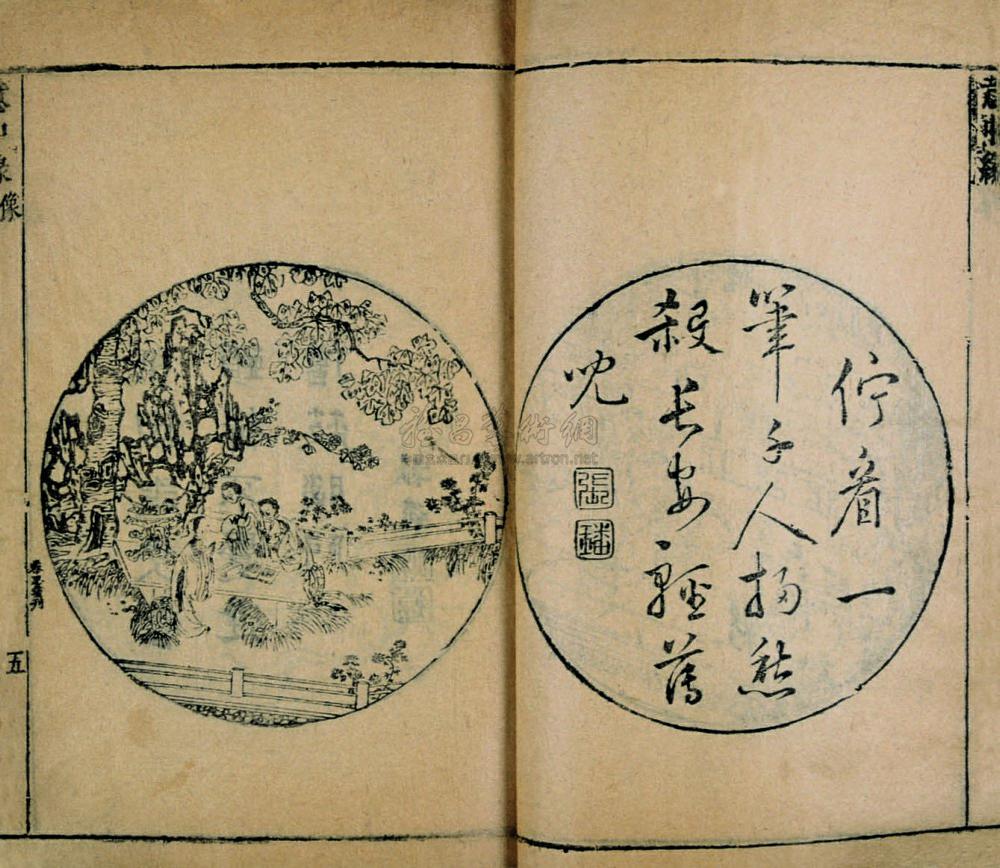 佇看一
筆千人掃愁
殺長安輕薄
兒
張
像
五
雅昌藝術網
www.artron.net